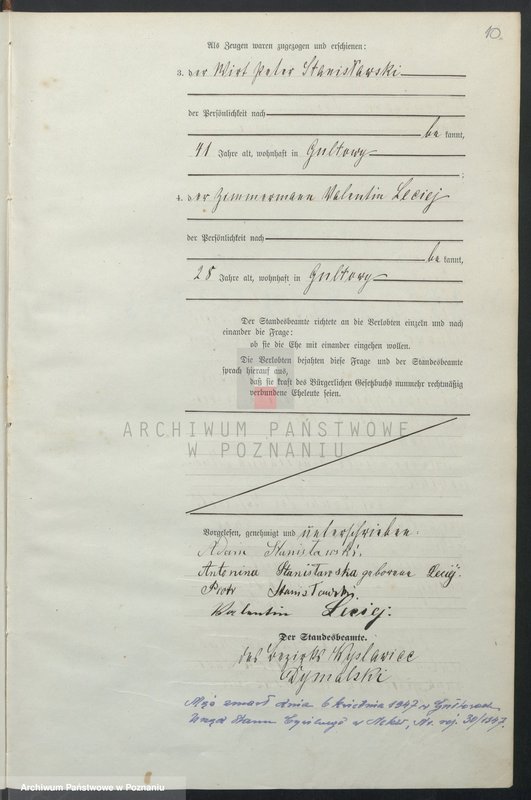 10.
Als Zeugen waren zugezogen und erschienen:
3. der Wirt Peter Stanisławski
der Persönlichkeit nach
be kannt,
41 Jahre alt, wohnhaft in Gultowy
;
4. der Zimmermann Valentin Leciej
der Persönlichkeit nach
be kannt,
28 Jahre alt, wohnhaft in Gultowy
Der Standesbeamte richtete an die Verlobten einzeln und nach
einander die Frage:
ob sie die Ehe mit einander eingehen wollen.
Die Verlobten bejahten diese Frage und der Standesbeamte
sprach hierauf aus,
daß sie kraft des Bürgerlichen Gesetzbuchs nunmehr rechtmäßig
verbundene Eheleute seien.
ARCHIWUM PAŃSTWOWE
W POZNANIU
Vorgelesen, genehmigt und unterschrieben:
Adam Stanisławski.
Antonina Stanisławska geborene Leciej.
Piotr Stanisławski.
Walentin Leciej.
Der Standesbeamte.
des Bezirks Wysławice
Mąż zmarł dnia 6 kwietnia 1947 w Gułtowach
Urząd Stanu Cywilnego w Nekli, Nr. rej. 30/1947.
Archiwum Państwowe w Poznaniu